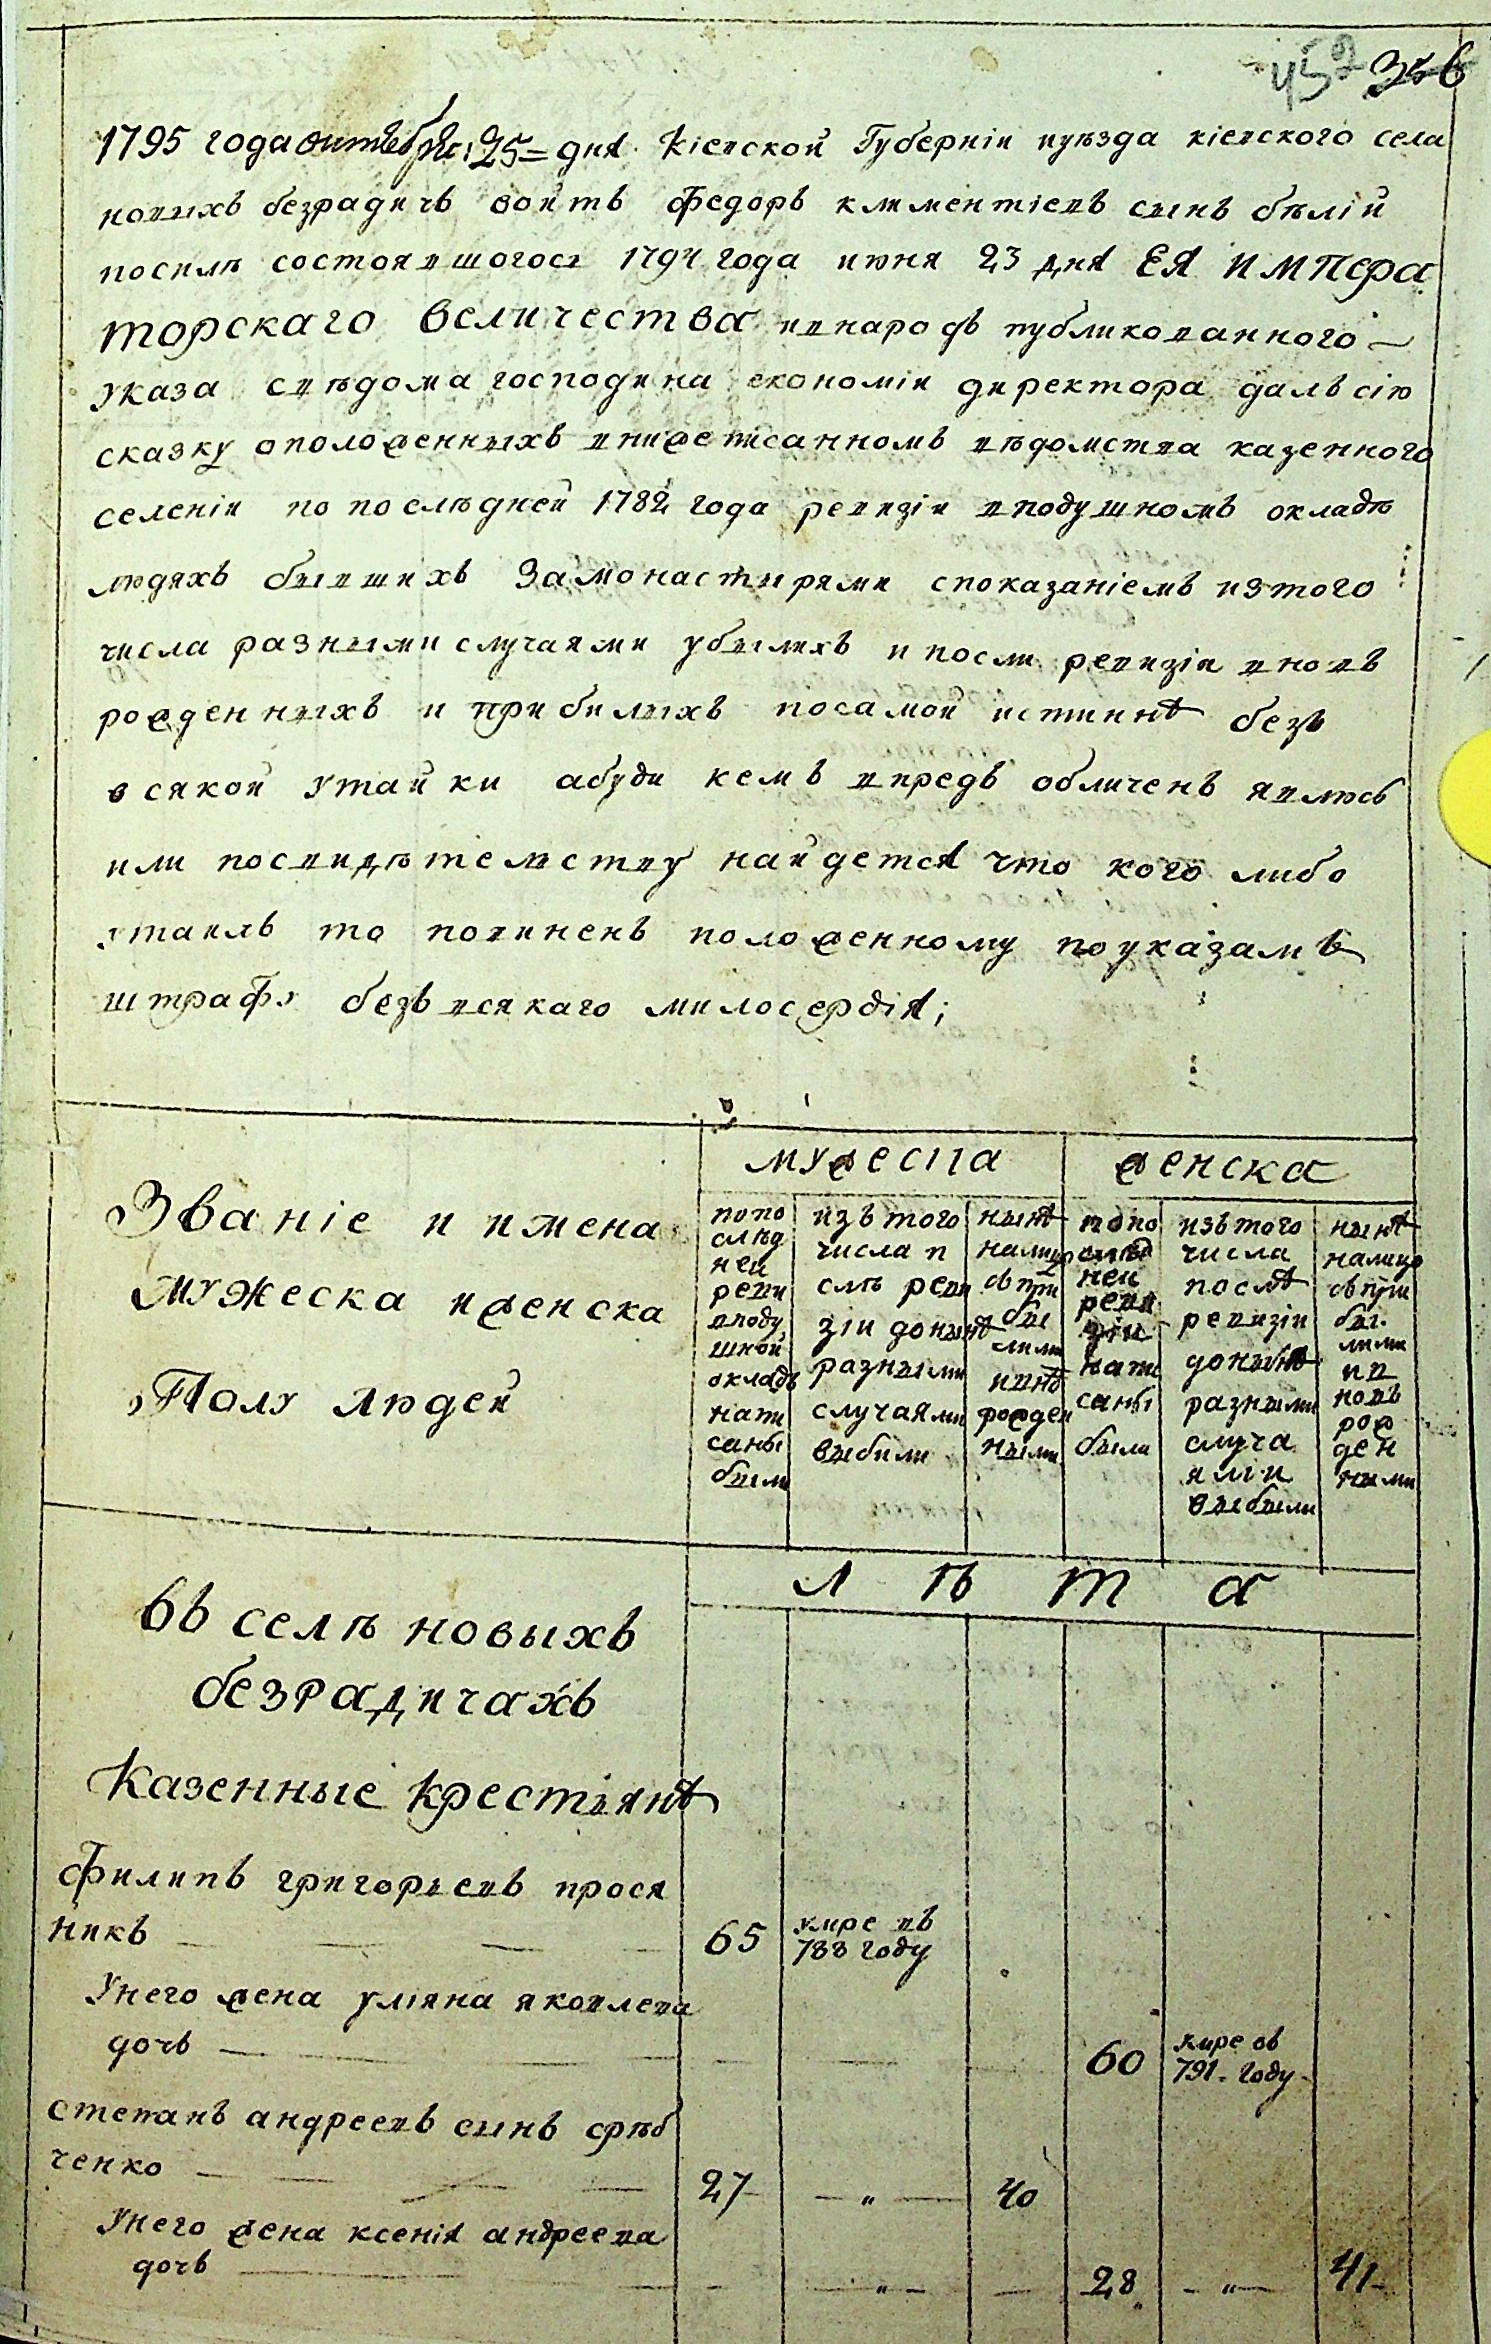 452 356
1795 года октебря 25 = дня кіевской Губерніи иуѣзда кіевского села
новыхъ безрадичъ войтъ федоръ климентіевъ сынъ бѣлій
посилѣ состоявшогося 1794 года июня 23 дня ЕЯ ИМПера
торскаго величества ивнародъ публикованного
указа свѣдома господина економіи директора далъ сію
сказку оположенныхъ внижеписанномъ вѣдомства казенного
селеніи по послѣдней 1782 года ревизіи вподушномъ окладѣ
людяхъ бывшихъ Замонастирями споказаніемъ изтого
числа разными случаями убылихъ и посли ревизіи вновъ
рожденныхъ и прибилыхъ посамой истиннѣ безъ
всякой утайки абуди кемъ впредъ обличенъ явлюсь
или посвидѣтелству найдется что кого либо
утаилъ то повиненъ положенному поуказамъ
штрафу безъ всякаго милосердія;
мужеска женска
Званіе и имена
мужеска иженска
Полу людей
попо слѣд ней реви вподу шной окладъ напи саны были
изъ того числа п слѣ реви зіи донынѣ разными случаями выбили
нынѣ налицо съ при бы лими ивнѡ рожден ными
попо слѣд ней реви зіи напи саны были
изъ того числа послѣ ревизіи донынѣ разными случа ями выбыли
нынѣ налицо съ при бы лими ив новъ рож ден ными
л ѣ т а
въ селѣ новыхъ
безрадичахъ
Казенные крестіянѣ
филипъ григорьевъ прося
никъ 65 умре въ 788 году
Унего жена уліяна яковлева
дочь 60 умре въ 791 году
степанъ андреевъ сынъ срѣб
ченко 27 — „ — 40
Унего жена ксенія андреева
дочь — „ — 28 — „ — 41